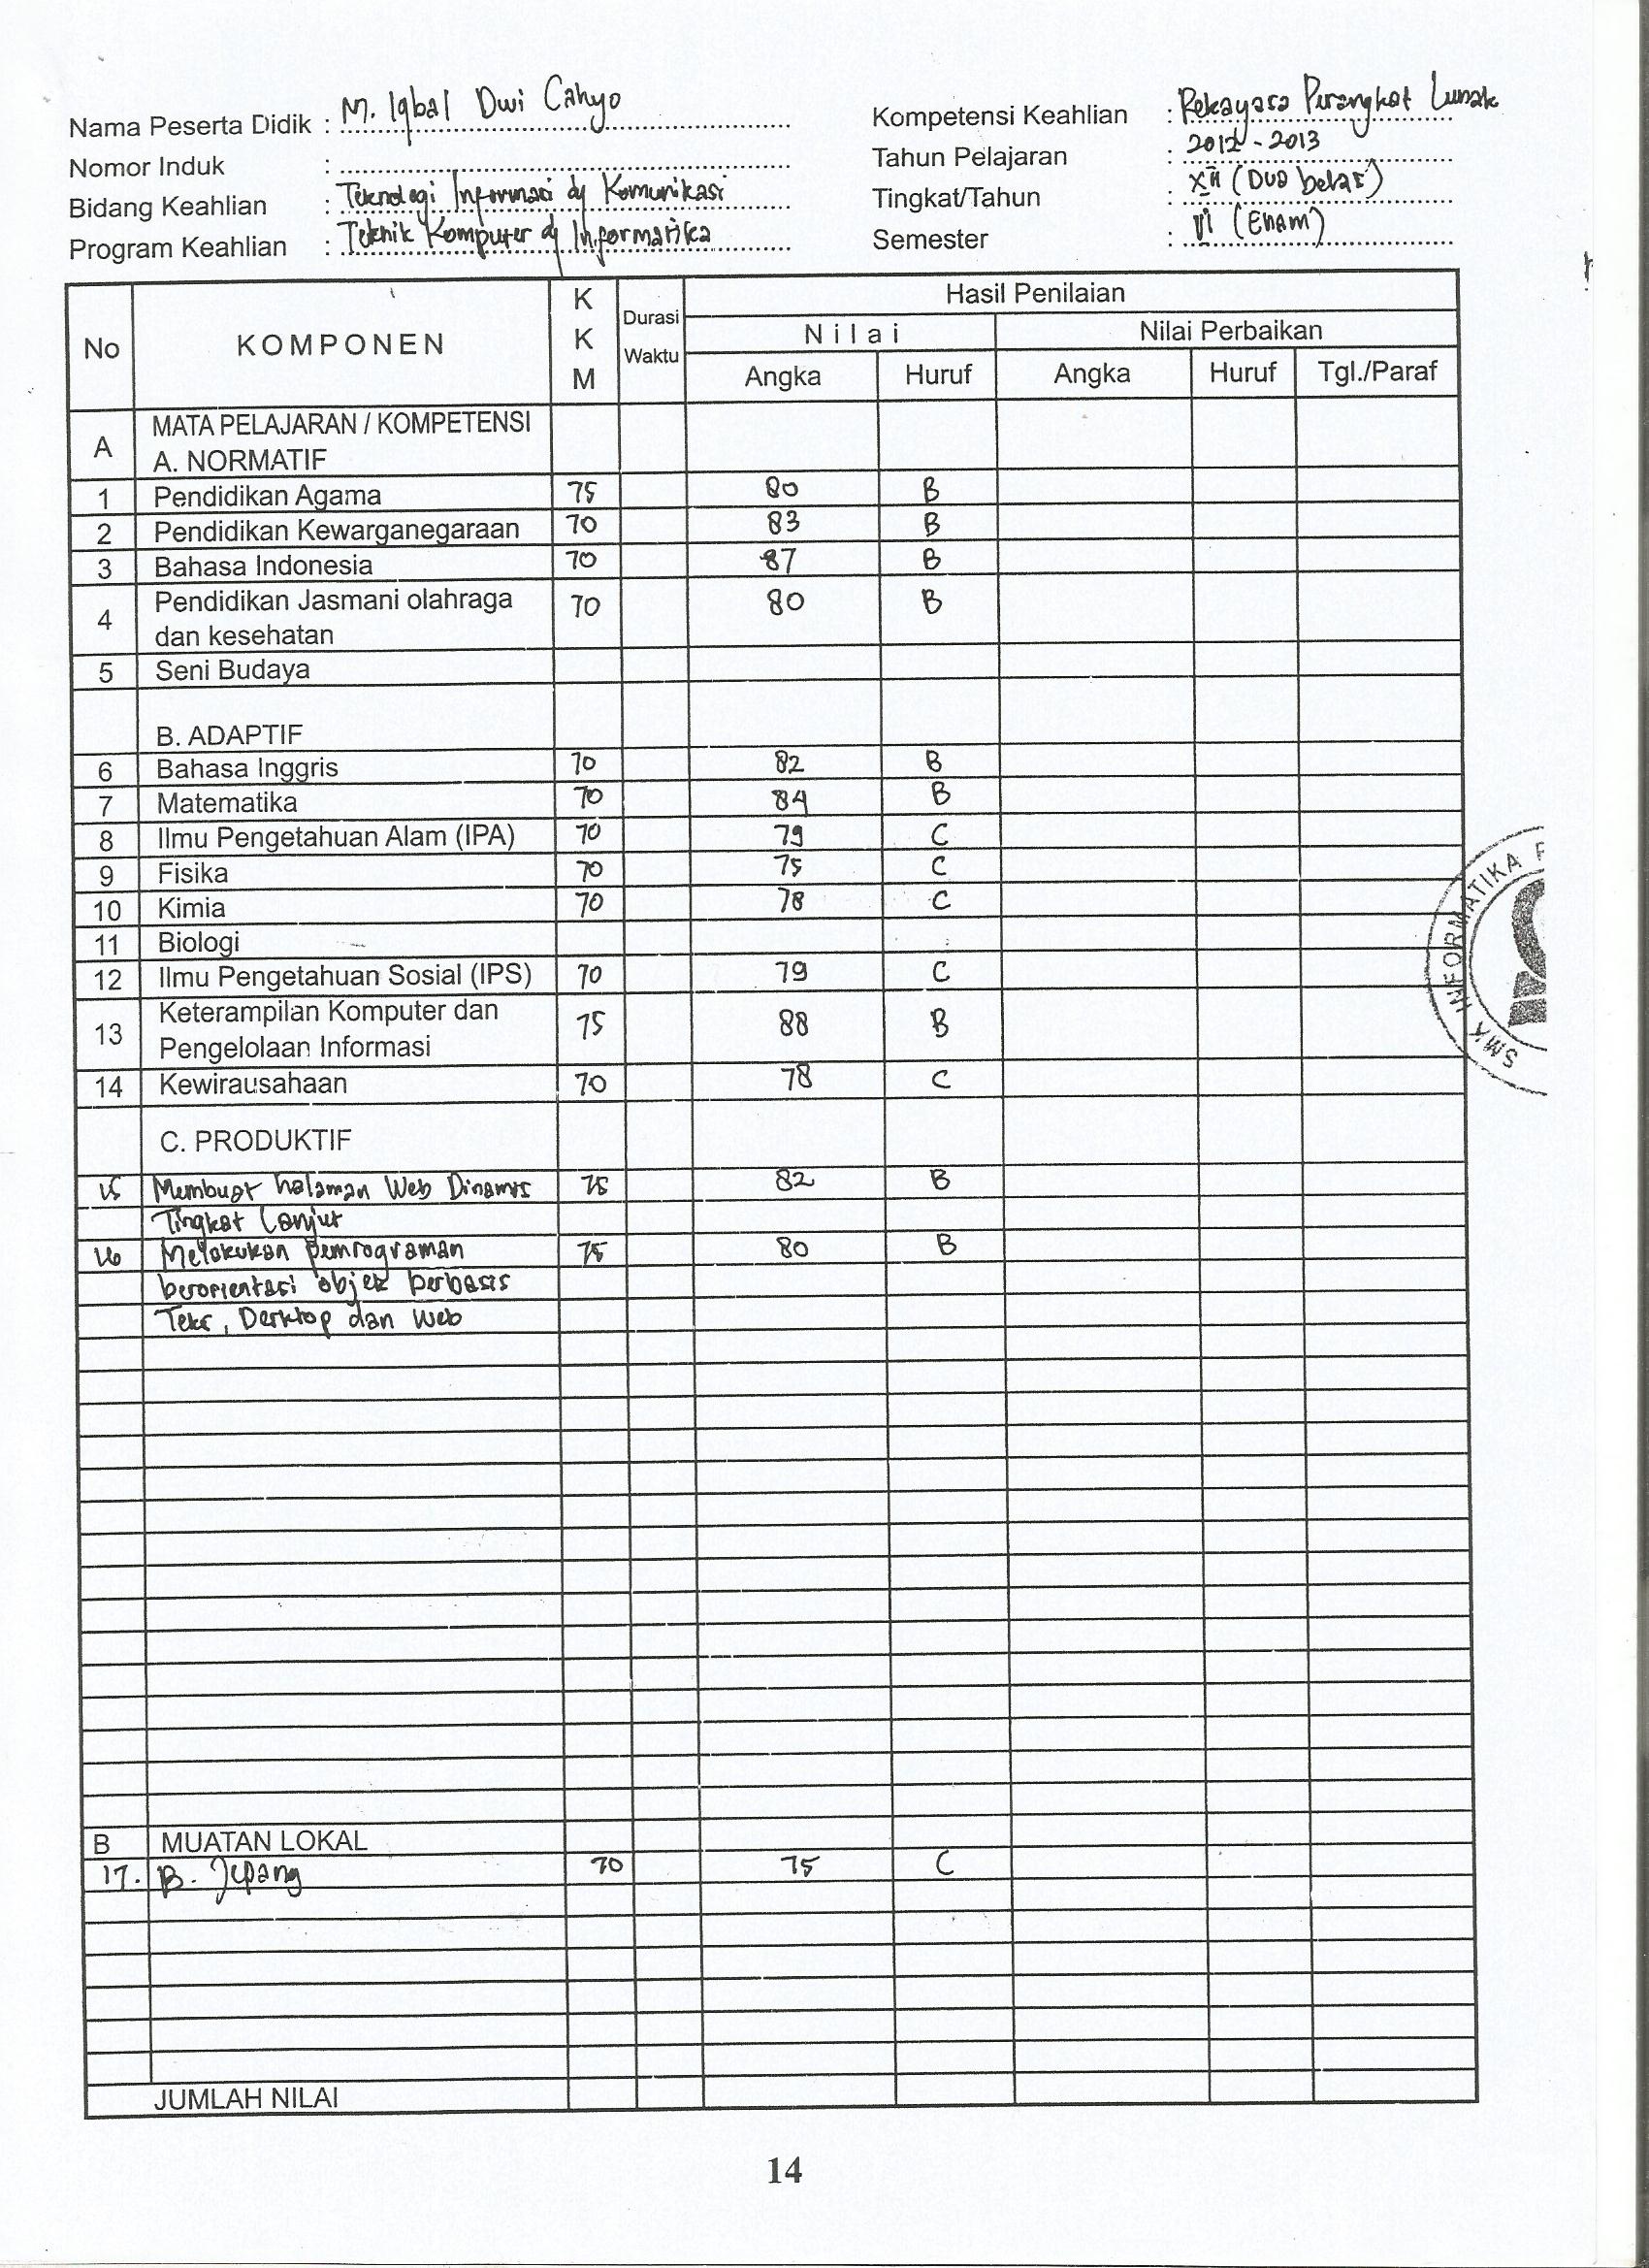 Nama Peserta Didik : M. Iqbal Dwi Cahyo
Nomor Induk :
Bidang Keahlian : Teknologi Informasi dg Komunikasi
Program Keahlian : Teknik Komputer dg Informatika
Kompetensi Keahlian : Rekayasa Perangkat Lunak
Tahun Pelajaran : 2012 - 2013
Tingkat/Tahun : XII (Dua belas)
Semester : VI (Enam)
No KOMPONEN KKM Durasi Waktu Hasil Penilaian
Nilai Nilai Perbaikan
Angka Huruf Angka Huruf Tgl./Paraf
A MATA PELAJARAN / KOMPETENSI
A. NORMATIF
1 Pendidikan Agama 75 80 B
2 Pendidikan Kewarganegaraan 70 83 B
3 Bahasa Indonesia 70 87 B
4 Pendidikan Jasmani olahraga 70 80 B
dan kesehatan
5 Seni Budaya
B. ADAPTIF
6 Bahasa Inggris 70 82 B
7 Matematika 70 84 B
8 Ilmu Pengetahuan Alam (IPA) 70 79 C
9 Fisika 70 75 C
10 Kimia 70 78 C
11 Biologi
12 Ilmu Pengetahuan Sosial (IPS) 70 79 C
13 Keterampilan Komputer dan 75 88 B
Pengelolaan Informasi
14 Kewirausahaan 70 78 C
C. PRODUKTIF
15 Membuat halaman Web Dinamis 75 82 B
Tingkat Lanjut
16 Melakukan pemrograman 75 80 B
berorientasi objek berbasis
Teks, Desktop dan Web
B MUATAN LOKAL
17. B. Jepang 70 75 C
JUMLAH NILAI
SMK INFORMATIKA
14